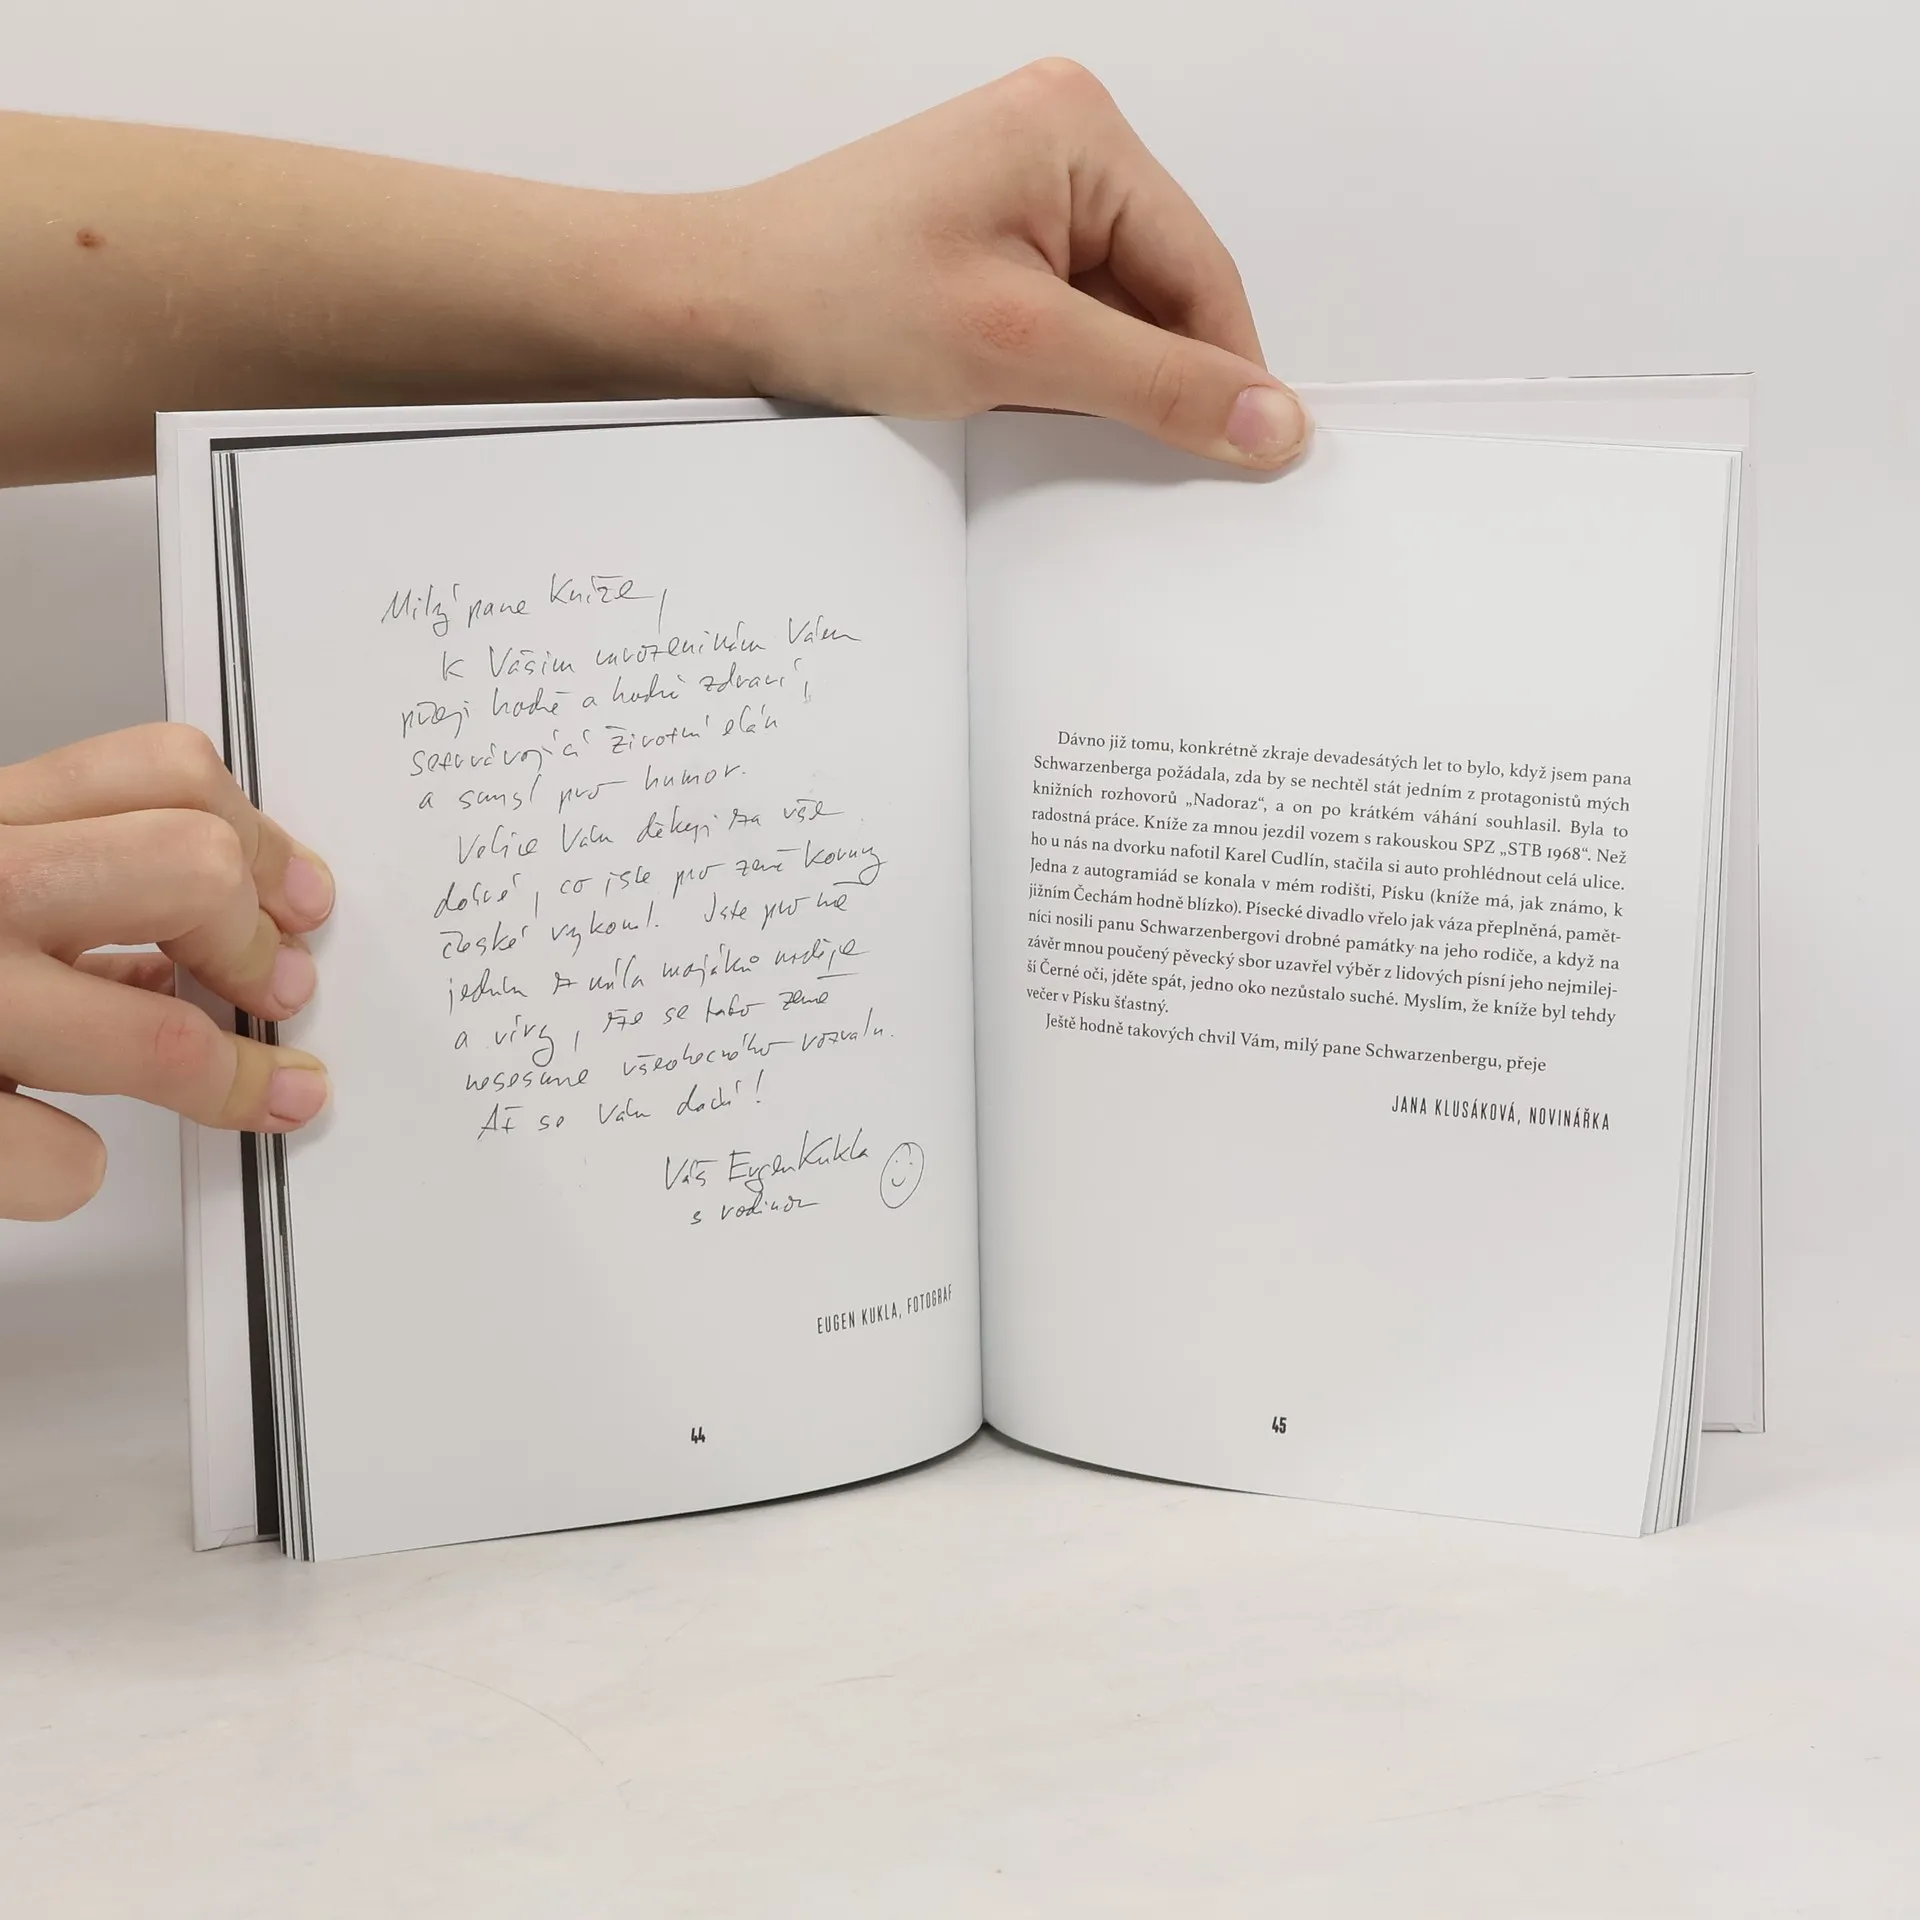 Milý pane Kníže,
K Vašim narozeninám Vám
přeji hodně a hodně zdraví,
setrvávající životní elán
a smysl pro humor.
Velice Vám děkuji za vše
dobré, co jste pro země Koruny
české vykonal. Jste pro mě
jedním z mála majáků naděje
a víry, že se tato země
nesesune všeobecného rozvalu.
Ať se Vám daří!
Váš Eugen Kukla
s rodinou
EUGEN KUKLA, FOTOGRAF
44
Dávno již tomu, konkrétně zkraje devadesátých let to bylo, když jsem pana
Schwarzenberga požádala, zda by se nechtěl stát jedním z protagonistů mých
knižních rozhovorů „Nadoraz“, a on po krátkém váhání souhlasil. Byla to
radostná práce. Kníže za mnou jezdil vozem s rakouskou SPZ „STB 1968“. Než
ho u nás na dvorku nafotil Karel Cudlín, stačila si auto prohlédnout celá ulice.
Jedna z autogramiád se konala v mém rodišti, Písku (kníže má, jak známo, k
jižním Čechám hodně blízko). Písecké divadlo vřelo jak váza přeplněná, pamět-
níci nosili panu Schwarzenbergovi drobné památky na jeho rodiče, a když na
závěr mnou poučený pěvecký sbor uzavřel výběr z lidových písní jeho nejmilej-
ší Černé oči, jděte spát, jedno oko nezůstalo suché. Myslím, že kníže byl tehdy
večer v Písku šťastný.
Ještě hodně takových chvil Vám, milý pane Schwarzenbergu, přeje
JANA KLUSÁKOVÁ, NOVINÁŘKA
45